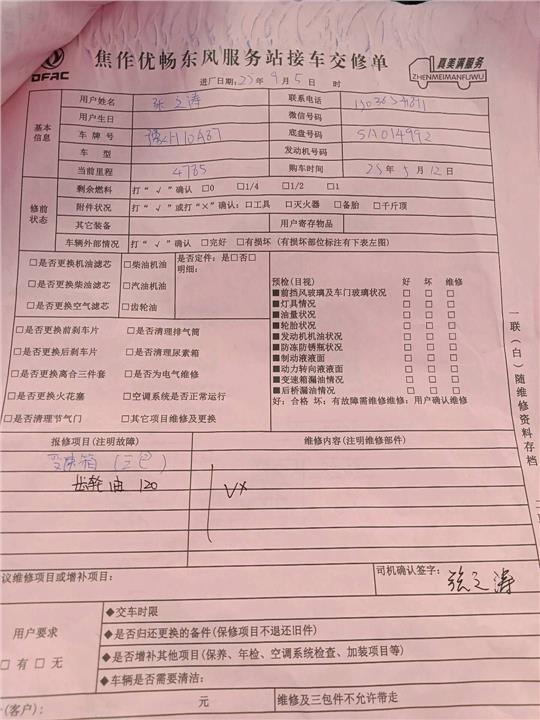 DFAC
焦作优畅东风服务站接车交修单
真美满服务
ZHENMEIMANFUWU
进厂日期:23年9月5日 时
基本信息
用户姓名 张之涛 联系电话
用户生日 微信号码
车牌号 豫H10A87 底盘号码 SA014992
车型 发动机号码
当前里程 4785 购车时间 23年5月12日
修前状态
剩余燃料 打“√”确认 □0 □1/4 □1/2 □1
附件状况 打“√”或打“×”确认:□工具 □灭火器 □备胎 □千斤顶
其它装备 用户寄存物品
车辆外部情况 打“√”确认 □完好 □有损坏(有损坏部位标注有下表左图)
□是否更换机油滤芯 □柴油机油 是否定件:是□否□
明细:
□是否更换柴油滤芯 □汽油机油
□是否更换空气滤芯 □齿轮油
预检(目视) 好 坏 维修
■前挡风玻璃及车门玻璃状况 □ □ □
■灯具情况 □ □ □
■油量状况 □ □ □
■轮胎状况 □ □ □
■发动机机油状况 □ □ □
■防冻防锈瓶状况 □ □ □
■制动液液面 □ □ □
■动力转向液液面 □ □ □
■变速箱漏油情况 □ □ □
■后桥漏油情况 □ □ □
好:合格 坏:有故障需维修维修:用户确认维修
□是否更换前刹车片 □是否清理排气筒
□是否更换后刹车片 □是否清理尿素箱
□是否更换离合三件套 □是否为电气维修
□是否更换火花塞 □空调系统是否正常运行
□是否清理节气门 □其它项目维修及更换
一联(白)随维修资料存档
报修项目(注明故障) 维修内容(注明维修部件)
变速箱(三包)
齿轮油 120
议维修项目或增补项目:
司机确认签字: 张之涛
用户要求
□有□无
◆交车时限
◆是否归还更换的备件(保修项目不退还旧件)
◆是否增补其他项目(保养、年检、空调系统检查、加装项目等)
◆车辆是否需要清洁:
(客户): 元 维修及三包件不允许带走